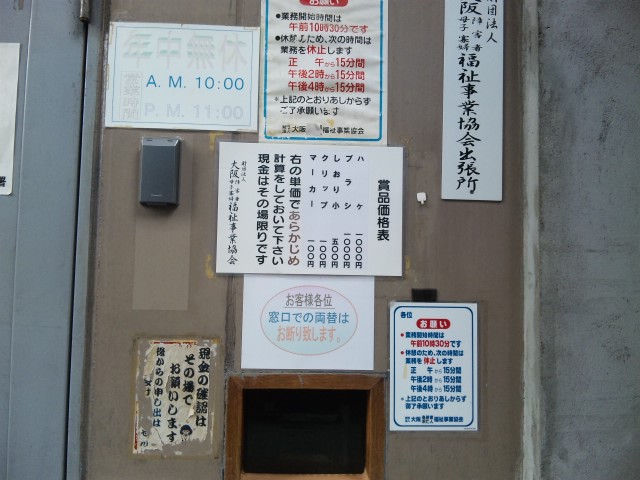 年中無休
営業時間
A.M. 10:00
P.M. 11:00
お願い
●業務開始時間は
午前10時30分です
●休憩のため、次の時間は
業務を休止します
正 午から15分間
午後2時から15分間
午後4時から15分間
＊上記のとおりあしからず
ご了承願います
大阪 福祉事業協会
財団法人
大阪
障害者
母子寡婦
福祉事業協会出張所
賞品価格表
ハケ 一〇〇〇円
ブラシ 一〇〇〇円
しおり小 五〇〇円
クリップ 一〇〇円
マーカー 一〇〇円
右の単価であらかじめ
計算をしておいて下さい
現金はその場限りです
財団法人
大阪
障害者
母子寡婦
福祉事業協会
お客様各位
窓口での両替は
お断り致します。
現金の確認は
その場で
お願いします
後からの申し出は
各位
お願い
●業務開始時間は
午前10時30分です
●休憩のため、次の時間は
業務を休止します
正 午から15分間
午後2時から15分間
午後4時から15分間
＊上記のとおりあしからず
御了承願います
大阪 福祉事業協会